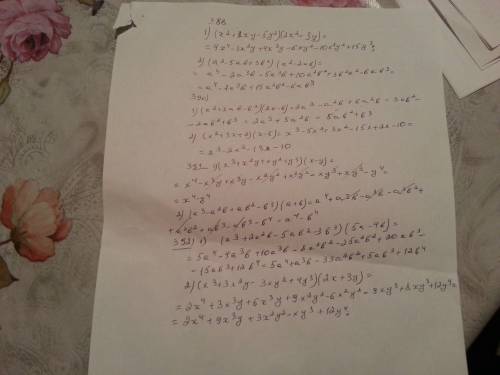 388
1) (x²+2xy-5y²)(2x²-3y)=
=4x⁴-3x²y+4x³y-6xy²-10x²y²+15y³
2) (a²-5ab+3b²)(a²-2ab)=
=a⁴-2a³b-5a³b+10a²b²+3b²a²-6ab³=
=a⁴-7a³b+13a²b²-6ab³
390
1) (a²+2ab-b²)(2a-b)=2a³-a²b+4a²b-2ab²-
-2ab²+b³=2a³+3a²b-4ab²+b³
2) (x²+3x+2)(x-5)=x³-5x²+3x²-15x+2x-10=
=x³-2x²-13x-10
391 1) (x³+x²y+xy²+y³)(x-y)=
=x⁴-x³y+x³y-x²y²+x²y²-xy³+xy³-y⁴=
=x⁴-y⁴
2) (a³-a²b+ab²-b³)(a+b)=a⁴+a³b-a³b-a²b²+
+a²b²+ab³-ab³-b⁴=a⁴-b⁴
392) 1) (a³+2a²b-5ab²-3b³)(5a-4b)=
=5a⁴-4a³b+10a³b-8a²b²-25a²b²+20ab³-
-15ab³+12b⁴=5a⁴+6a³b-33a²b²+5ab³+12b⁴
2) (x³+3x²y-3xy²+4y³)(2x+3y)=
=2x⁴+3x³y+6x³y+9x²y²-6x²y²-9xy³+8xy³+12y⁴=
=2x⁴+9x³y+3x²y²-xy³+12y⁴